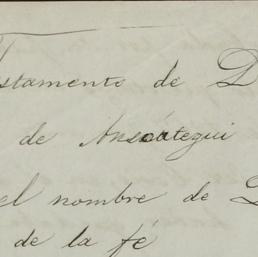 Testamento de D
de Anzoátegui
el nombre de D
de la fé